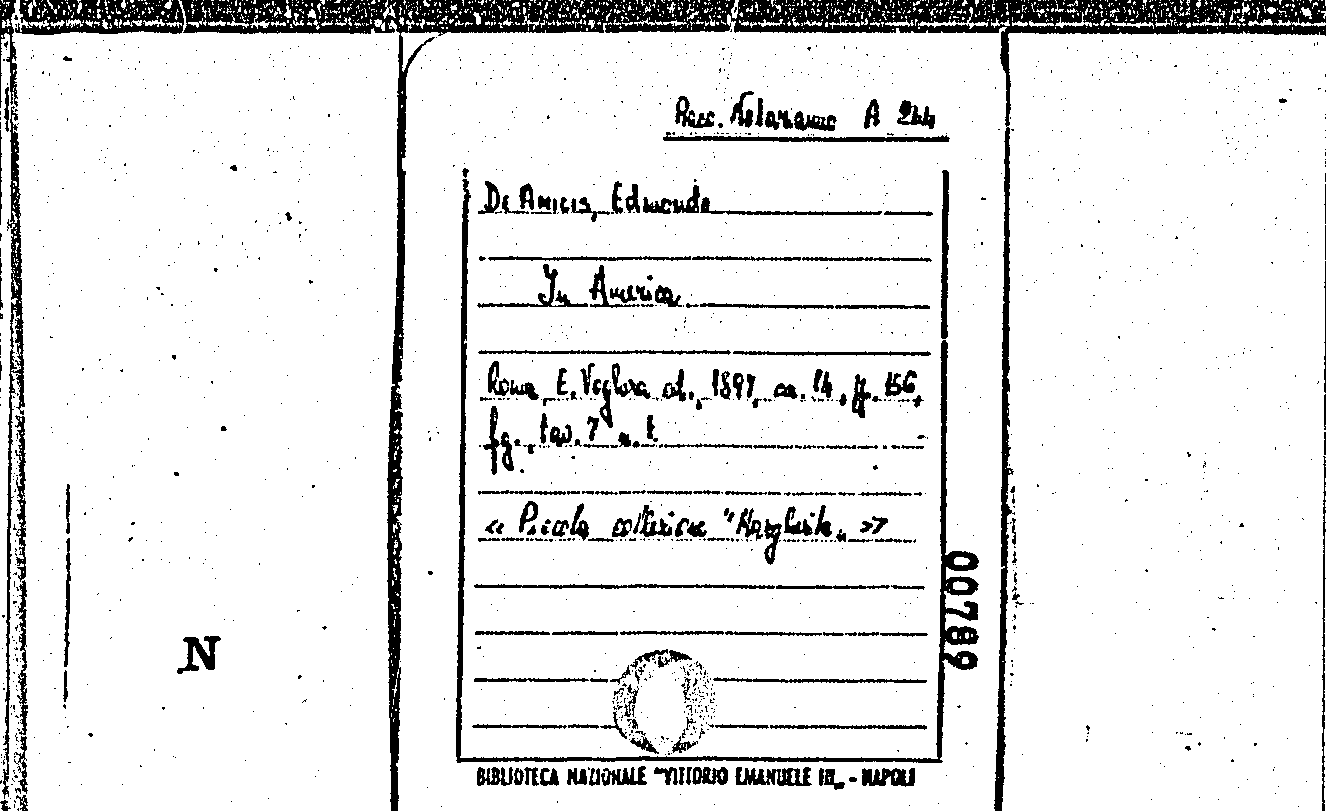 Racc. A 244
De Amicis, Edmondo
In America
Roma, E. Voghera ed., 1897, ca. 14, pp. 156,
fg., tav. 7 n. t.
« Piccola collezione "Margherita„ »
00789
N
BIBLIOTECA NAZIONALE "VITTORIO EMANUELE III„ - NAPOLI